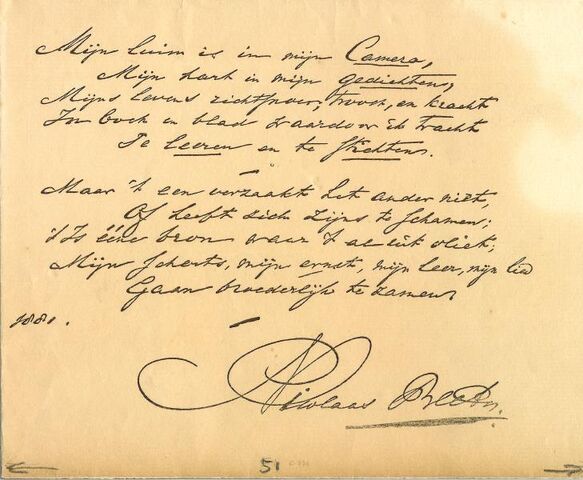 Mijn luim is in mijn Camera,
Mijn hart in mijn gedichten,
Mijns levens richtsnoer, troost, en kracht
In boek en blad waardoor ik tracht
Te leeren en te stichten.
Maar 't een verzaakt het ander niet,
Of heeft zich zijns te schamen;
't Is ééne bron waar 't al uit vliet;
Mijn scherts, mijn ernst, mijn leer, mijn lied
Gaan broederlijk te zamen.
1881.
Nikolaas Beets.
51